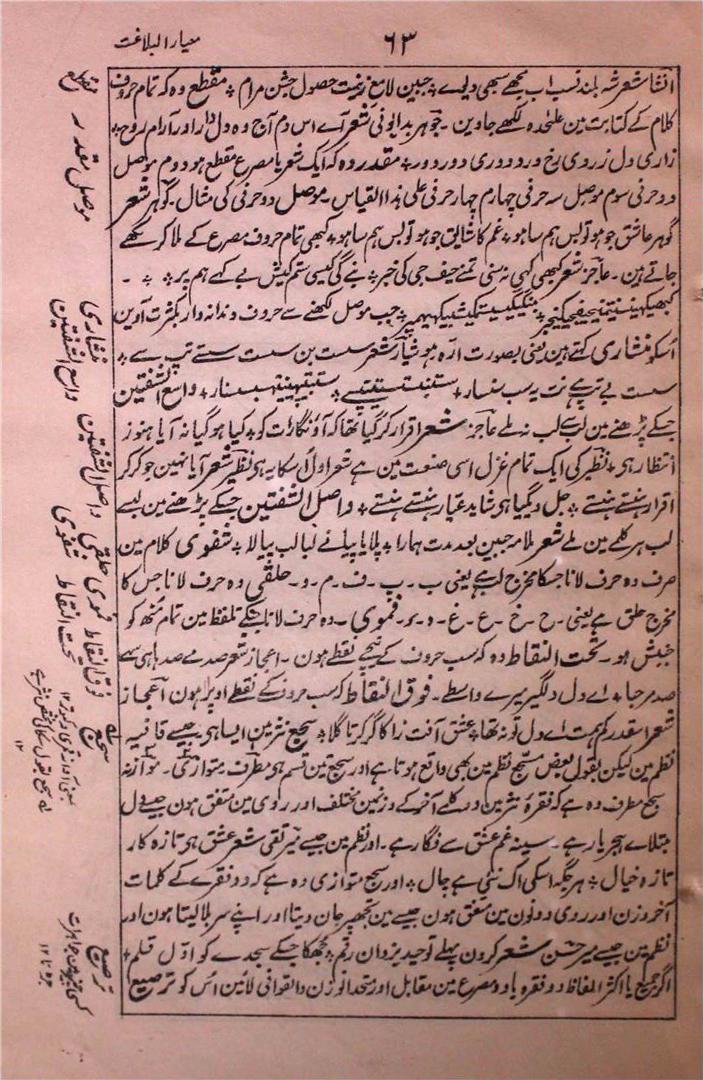 ۶۳
معیار البلاغت
انشا شعر شہ بلند نسب اب مجھے سبھی دیوے ٭ جبین لامع زینت حصول جشن مرام ٭ مقطع وہ کہ تمام حروف
کلام کے کتابت مین علٰحدہ لکھے جاوین ۔ جوہر بدایونی شعر آے اس دم آج وہ دل دار اور آرام روح ٭
زاری دل زردی رخ درد دوری دور دور ٭ مقدر وہ کہ ایک شعر یا مصرع مقطع ہو دوم موصل
دو حرفی سوم موصل سہ حرفی چہارم چہار حرفی علی ہذا القیاس ۔ موصل دو حرفی کی مثال ۔ گوہر شعر
گوہر عاشق جو ہو تو بس ہم سا ہو ٭ غم کا شایق جو ہو تو بس ہم سا ہو ٭ کبھی تمام حروف مصرع کے ملا کر لکھے
جاتے ہین ۔ عاجز شعر کبھی کہی نہ سنی تمنے حیف جی کی خبر ٭ بنے گی کیسی ستم کیش بے کہے ہم پر ٭
جب موصل لکھنے سے حروف دندانہ دار بکثرت آوین
اسکو منشاری کہتے ہین یعنی بصورت ارّہ ہو شیار شعر ست بن ست ستے تپ سے ٭
ست بے تپ ہے نت یہ سب سنسار ٭ واسع الشفتین
جسکے پڑھنے مین لب سے لب نہ ملے عاجز شعر اقرار کر گیا تھا کہ آؤنگا رات کو ٭ کیا ہو گیا نہ آیا ہنوز
انتظار ہو ٭ نظیر کی ایک تمام غزل اسی صنعت مین ہے شعر اول اسکا یہ ہو نظیر شعر آیا نہین جو کر کر
اقرار ہنستے ہنستے ٭ جل دیگیا ہو شاید عیار ہنستے ہنستے ٭ واصل الشفتین جسکے پڑھنے مین لب سے
لب ہر کلمے مین ملے شعر ملا مہ جبین بعد مدت ہمارا ٭ پلایا پیاپے لبالب پیالا ٭ شفوی کلام مین
صرف وہ حرف لانا جسکا مخرج لب ہے یعنی ب ۔ پ ۔ ف ۔ م ۔ و ۔ حلقی وہ حرف لانا جس کا
مخرج حلق ہے یعنی ۔ ح ۔ خ ۔ ع ۔ غ ۔ ہ ۔ ء ۔ فموی ۔ وہ حرف لانا جسکے تلفظ مین تمام منھ کو
جنبش ہو ۔ تحت النقاط وہ کہ سب حروف کے نیچے نقطے ہون ۔ اعجاز شعر صدمے صدہا ہی سہے
صد مرحبا ٭ اے دل دلگیر میرے واسطے ۔ فوق النقاط کہ سب حروفکے نقطے اوپر ہون اعجاز
شعر اسقدر کم ہمت اے دل تو نہ تھا ٭ عشق آفت زا کا گر کرتا گلا ٭ سجع نثر مین ایسا ہی جیسے قافیہ
نظم مین لیکن بقول بعض سجع نظم مین بھی واقع ہوتا ہے اور سجع تین قسم ہی مطرف متوازی ۔ موازنہ
سجع مطرف وہ ہے کہ فقرۂ نثر مین دو کلمے آخر کے وزنمین مختلف اور روی مین متفق ہون جیسے دل
مبتلاے ہجر یار ہے ۔ سینہ غم عشق سے فگار ہے ۔ اور نظم مین جیسے میر تقی شعر عشق ہی تازہ کار
تازہ خیال ٭ ہر جگہ اسکی اک نئی ہے چال ٭ اور سجع متوازی وہ ہے کہ دو فقرے کے کلمات
آخر وزن اور روی دونون مین متفق ہون جیسے مین تجھپر جان دیتا اور اپنے سر بلا لیتا ہون اور
نظم مین جیسے میر حسن شعر کرون پہلے توحید یزدان رقم ٭ جھکا جسکے سجدے کو اوّل قلم ٭
اگر جمیع یا اکثر الفاظ دو فقرہ یا دو مصرع مین مقابل اور متحد الوزن والقوافی لائین اُس کو ترصیع
مقطع
مقدر
موصل
منشاری
واسع الشفتین
واصل الشفتین
شفوی
حلقی
فموی
تحت النقاط
فوق النقاط
سجع
ترصیع